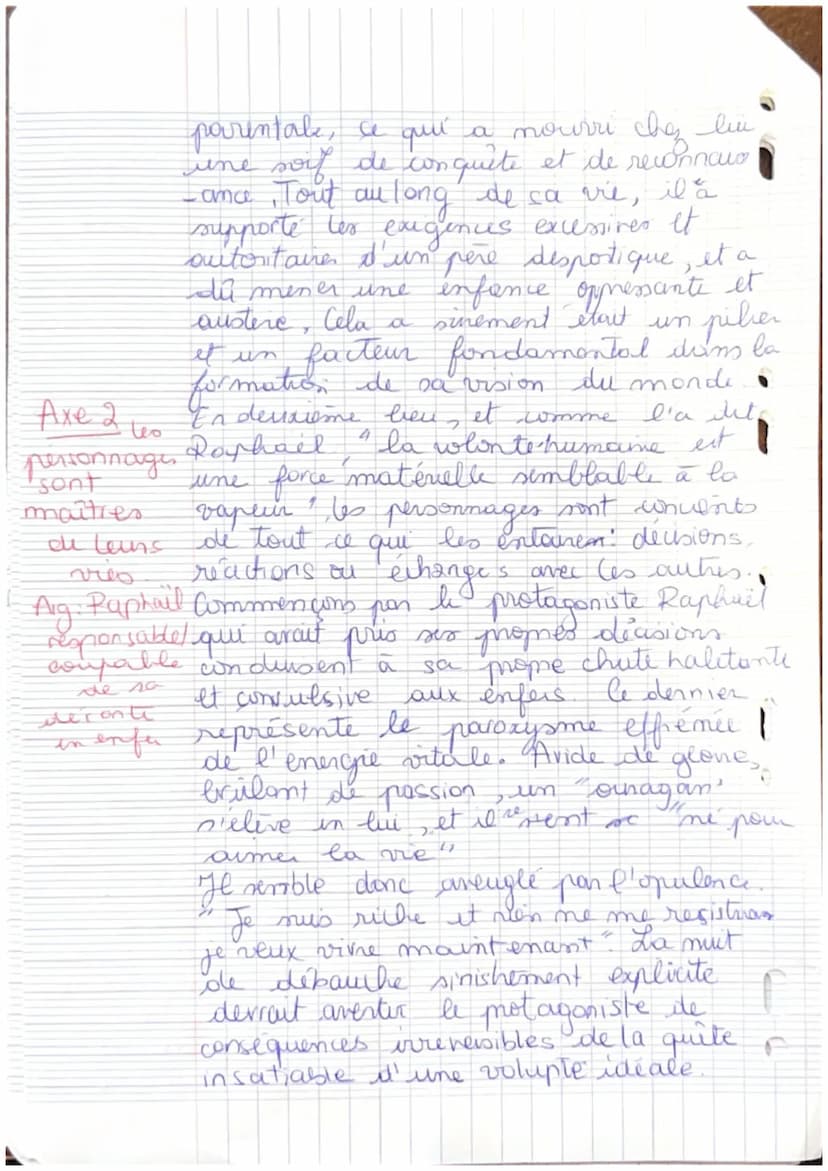 parentale, ce qui a nourri chez lui
une soif de conquête et de reconnaiss
-ance. Tout au long de sa vie, il a
supporté les exigences excessives et
autoritaires d'un père despotique, et a
dû mener une enfance oppressante et
austère. Cela a sûrement était un pilier
et un facteur fondamental dans la
formation de sa vision du monde.
Axe 2 les
personnages
sont
maîtres
de leurs
vies
En deuxième lieu, et comme l'a dit
Raphaël, "la volonté humaine est
une force matérielle semblable à la
vapeur", les personnages sont conscients
de tout ce qui les entourent: décisions,
réactions ou échanges avec les autres.
Arg: Raphaël
responsable/
coupable
de sa
en enfer
Commençons par le protagoniste Raphaël
qui avait pris ses propres décisions
conduisent à sa propre chute halitante
et convulsive aux enfers. Ce dernier
représente le paroxysme effrénée
de l'énergie vitale. Avide de gloire,
brûlant de passion, un "ouragan"
s'élève en lui, et il se sent "né pour
aimer la vie"
Il semble donc aveuglé par l'opulence.
"Je suis riche et rien ne me resistera
je veux vivre maintenant". La nuit
de débauche explicite
devrait avertir le protagoniste de
conséquences irreversibles de la quête
insatiable d'une volupté idéale.